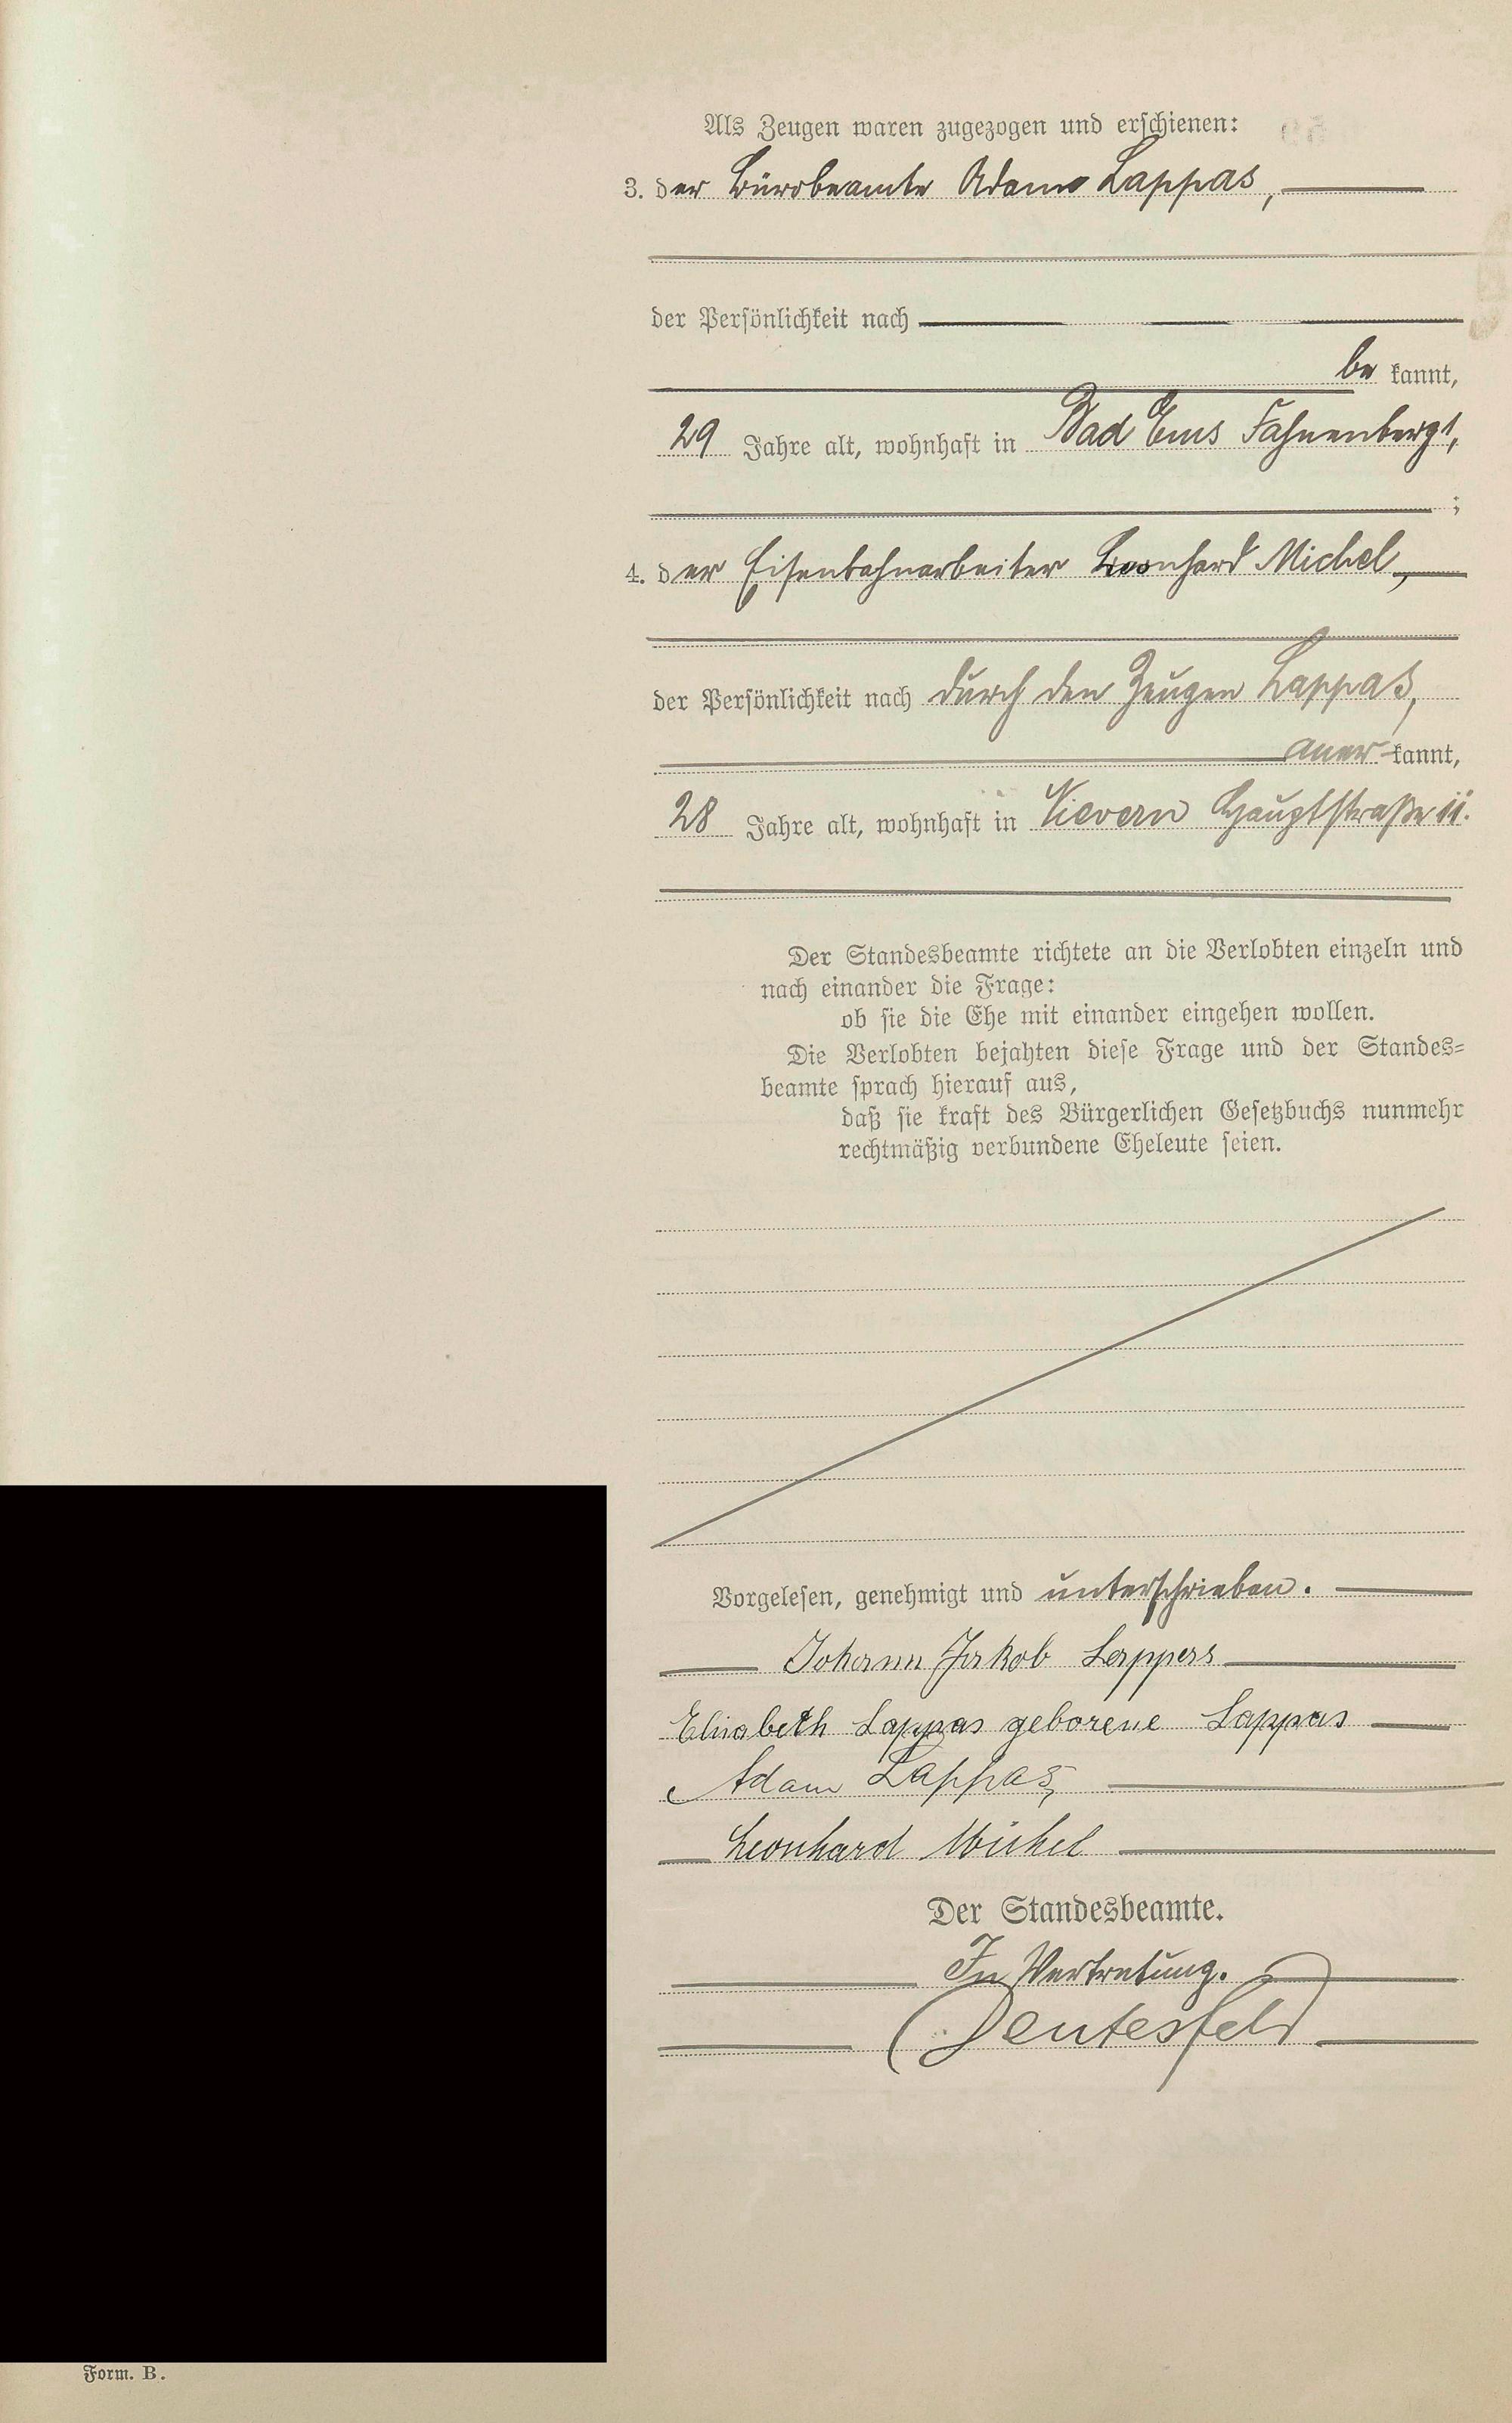 Als Zeugen waren zugezogen und erschienen:
3. der Bürobeamte Adam Lappas,
der Persönlichkeit nach
be kannt,
29 Jahre alt, wohnhaft in Bad Ems Fahnenberg 1,
;
4. der Eisenbahnarbeiter Leonhard Michel,
der Persönlichkeit nach durch den Zeugen Lappas,
aner kannt,
28 Jahre alt, wohnhaft in Nievern Hauptstraße 11.
Der Standesbeamte richtete an die Verlobten einzeln und
nach einander die Frage:
ob sie die Ehe mit einander eingehen wollen.
Die Verlobten bejahten diese Frage und der Standes=
beamte sprach hierauf aus,
daß sie kraft des Bürgerlichen Gesetzbuchs nunmehr
rechtmäßig verbundene Eheleute seien.
Vorgelesen, genehmigt und unterschrieben.
Johann Jakob Lappas
Elisabeth Lappas geborene Lappas
Adam Lappas,
Leonhard Michel
Der Standesbeamte.
In Vertretung.
Form. B.